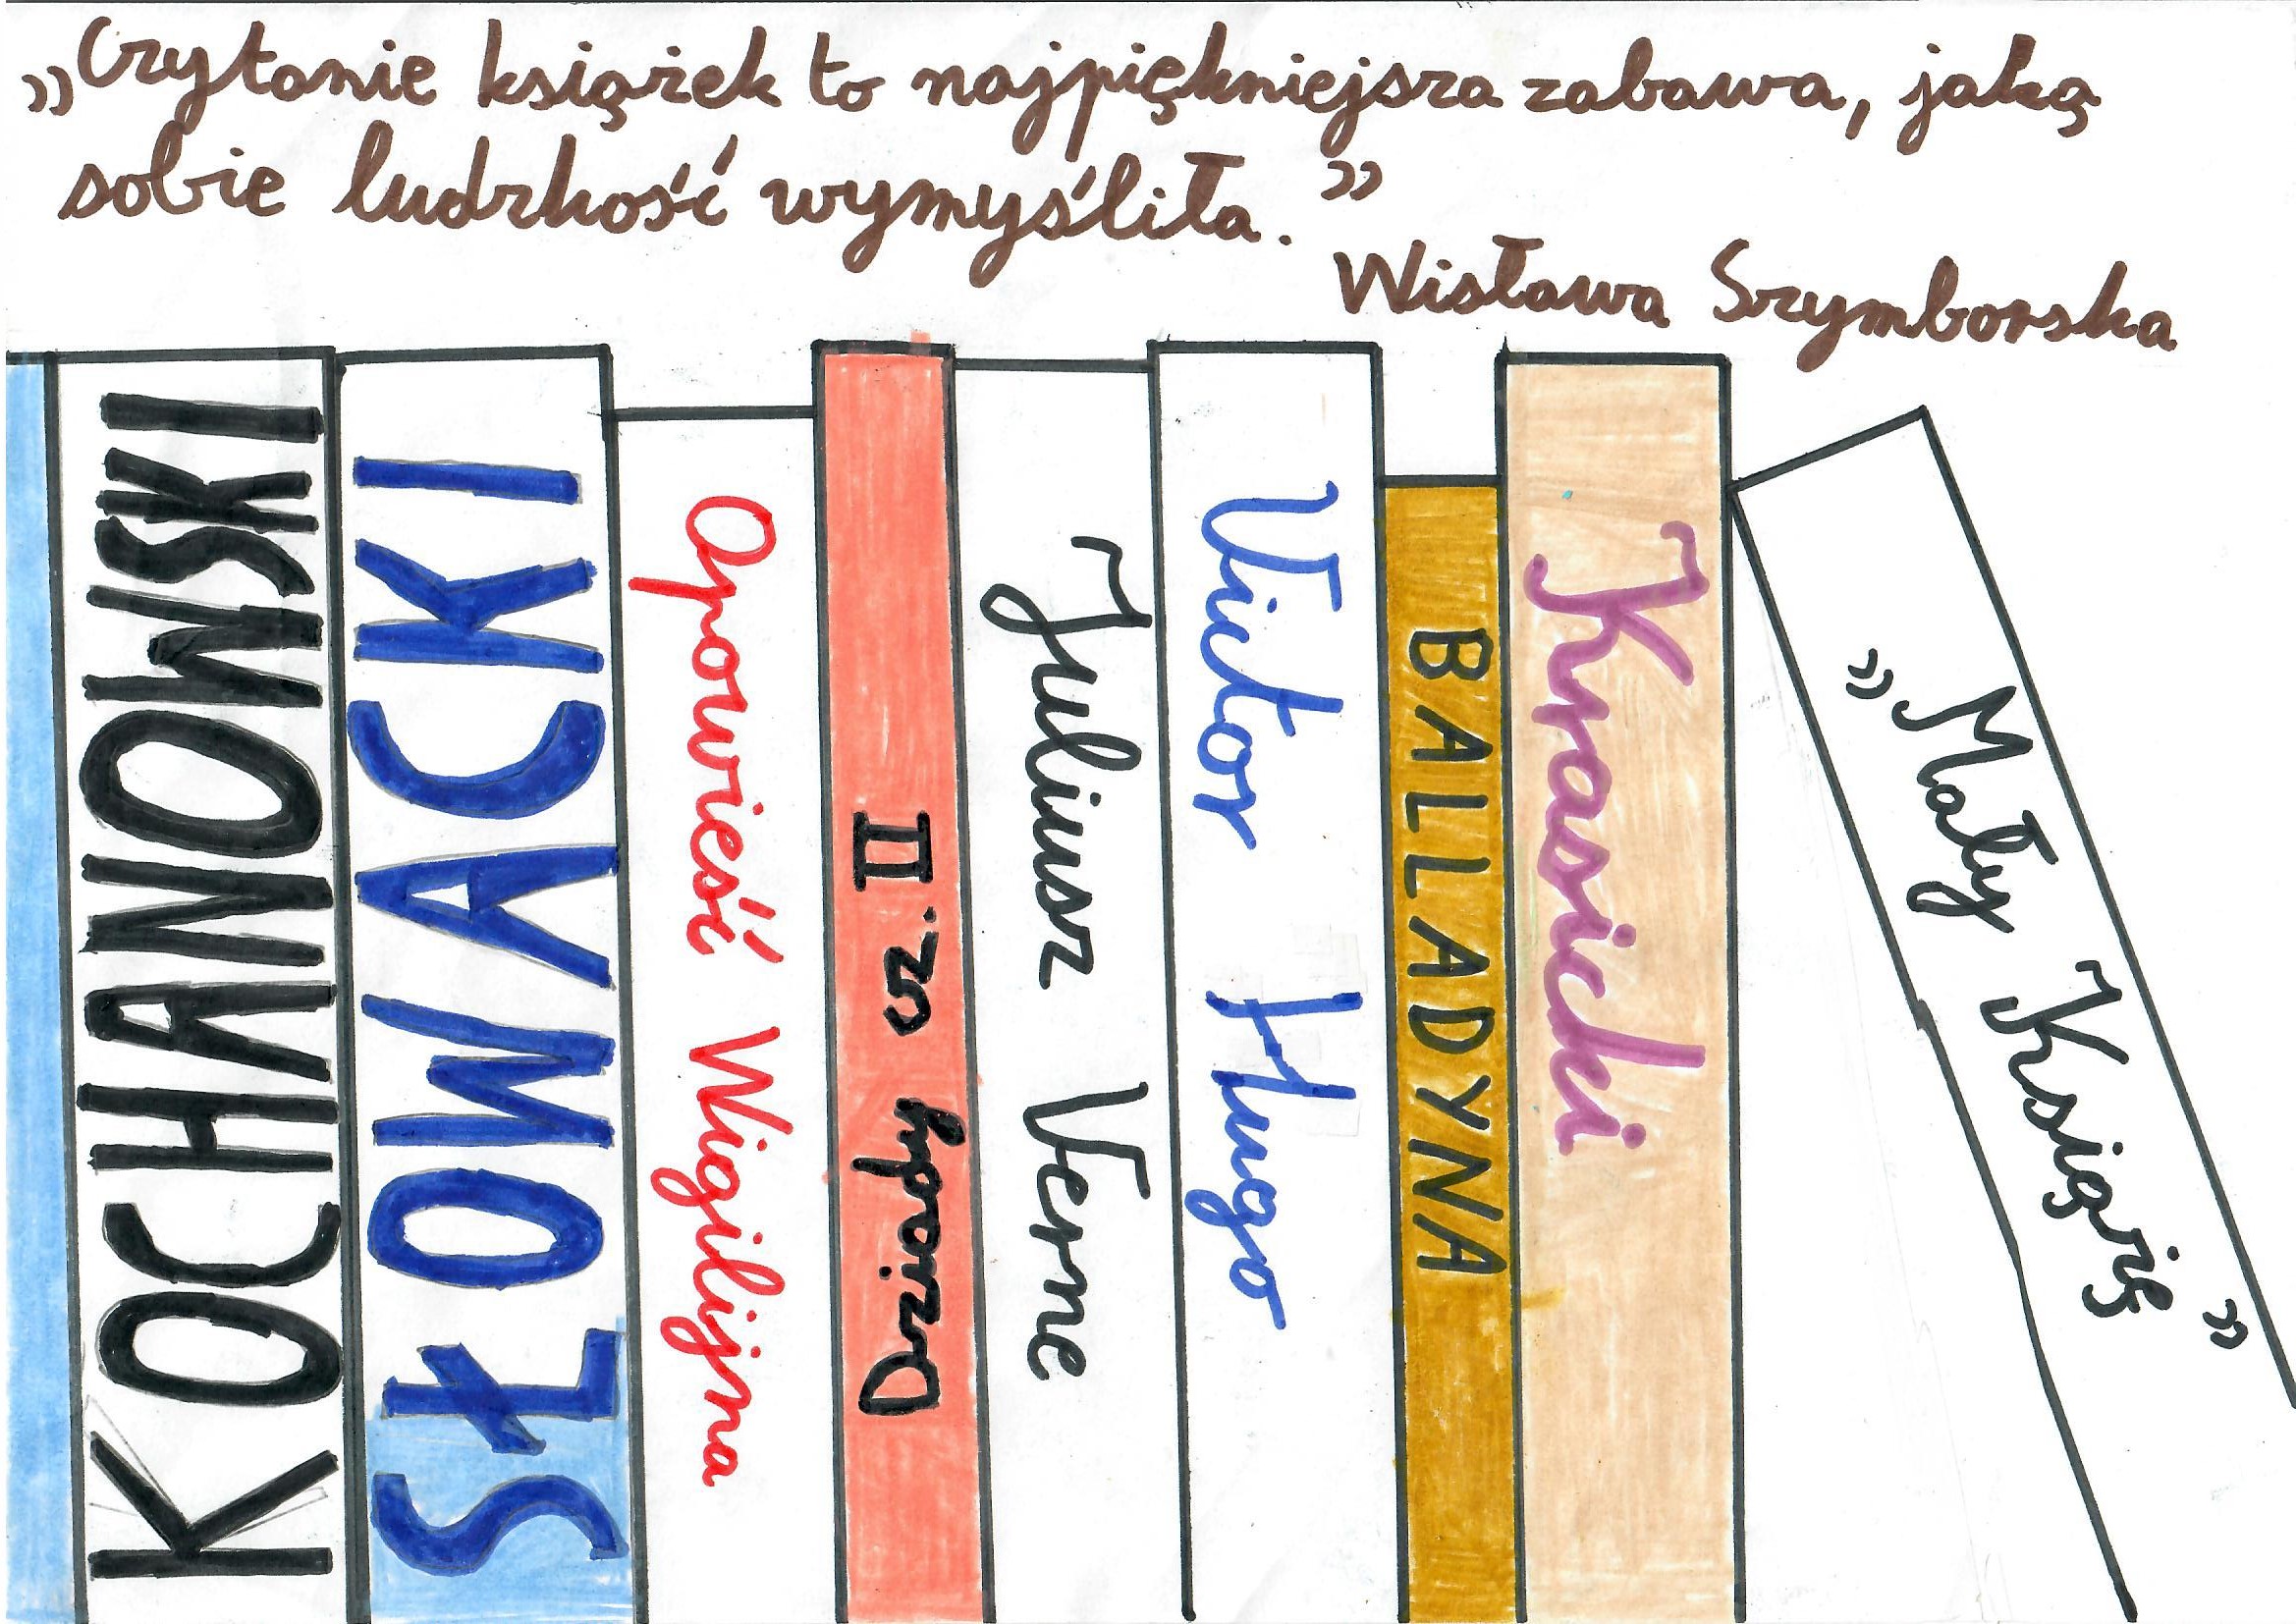 „Czytanie książek to najpiękniejsza zabawa, jaką
sobie ludzkość wymyśliła.”
Wisława Szymborska
KOCHANOWSKI
SŁOWACKI
Opowieść Wigilijna
Dziady cz. II
Juliusz Verne
Victor Hugo
BALLADYNA
Krasicki
„Mały Książę”